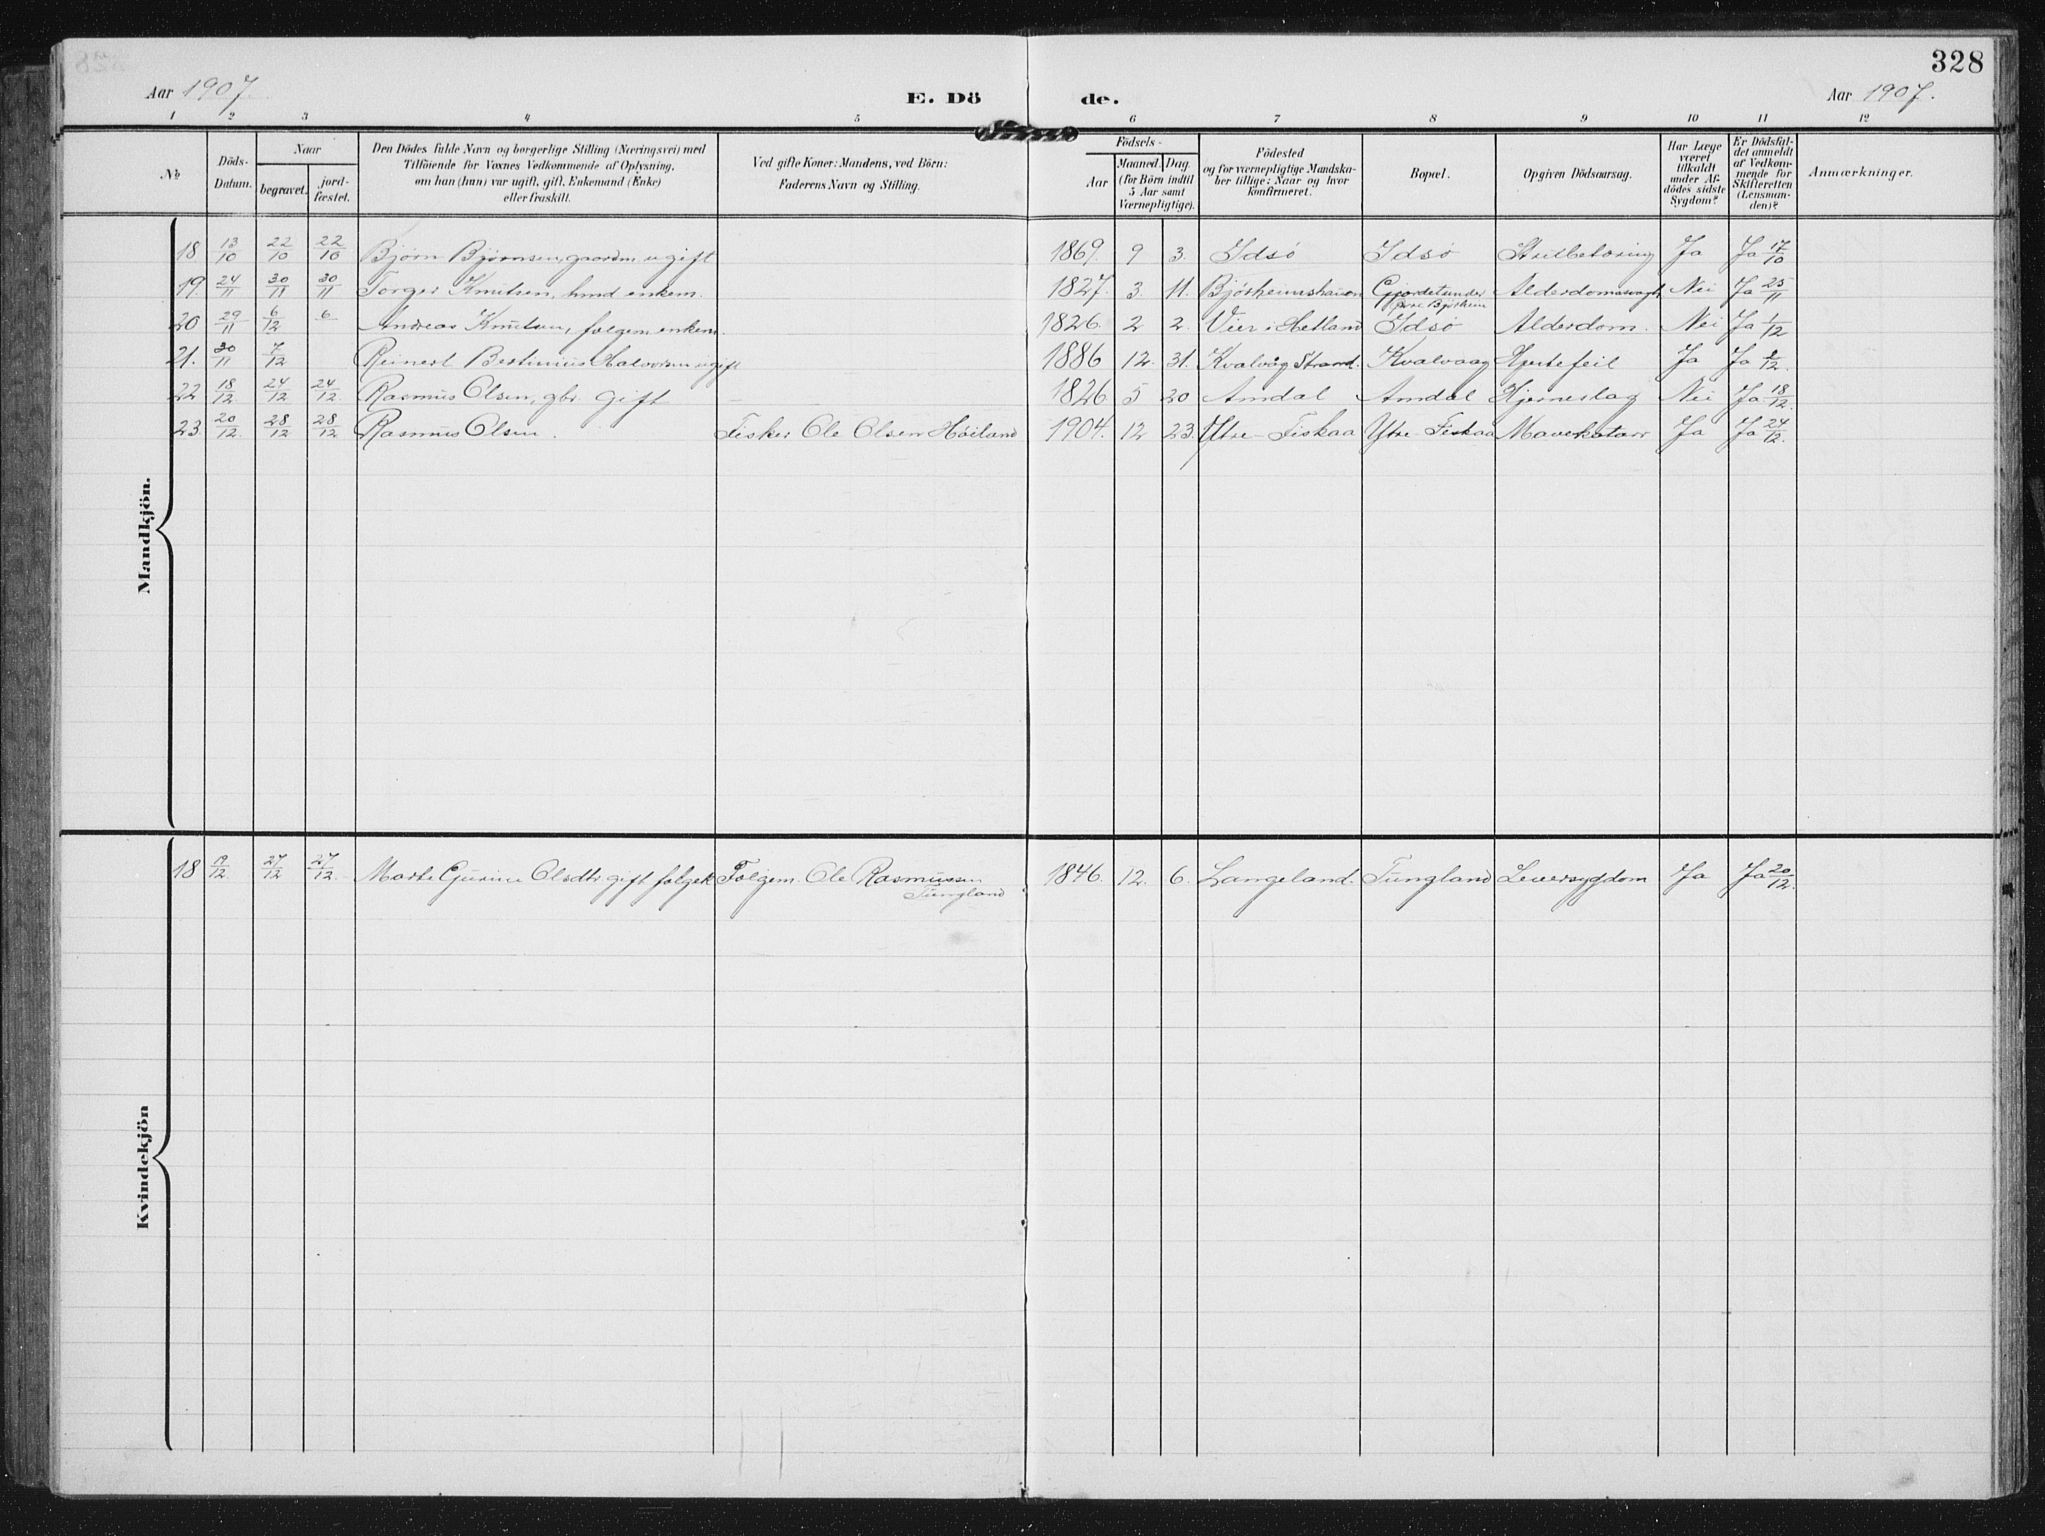 328
Aar 1907. E. Dö de. Aar 1907.
1 2 3 4 5 6 7 8 9 10 11 12
No Döds-Datum. Naar begravet. jord-fæstet. Den Dödes fulde Navn og borgerlige Stilling (Næringsvei) med Tilföiende for Voxnes Vedkommende af Oplysning, om han (hun) var ugift, gift, Enkemand (Enke) eller fraskilt. Ved gifte Koner: Mandens, ved Börn: Faderens Navn og Stilling. Födsels- Aar Maaned. Dag. (for Börn indtil 5 Aar samt Værnepligtige). Födested og for værnepligtige Mandskaber tillige: Naar og hvor konfirmeret. Bopæl. Opgiven Dödsaarsag. Har Læge været tilkaldt under Afdödes sidste Sygdom? Er Dödsfaldet anmeldt af Vedkommende for Skifteretten (Lensmanden)? Anmærkninger.
Mandkjön.
18 13/10 22/10 22/10 Bjørn Bjørnsen, gaardm. ugift 1869. 9 3. Idsö Idsö Ja Ja 17/10
19. 24/11 30/11 30/11 Torger Knutsen, hmd enkem. 1827. 3. 11. Nei Ja 25/11
20 29/11 6/12 6 Andreas Knutsen, folgem enkem. 1826. 2 2. Vier i Hetland Idsö Alderdom. Nei Ja 1/12
21. 30/11 7/12 Reinert Bertinius Halvorsen ugift 1886 12. 31. Kvalvåg Strand. Kvalvaag Hjertefeil Ja Ja
22 18/12 24/12 24/12 Rasmus Olsen, gbr. gift 1826 5 20 Amdal Amdal Hjerneslag Nei Ja 18/12
23 20/12. 28/12 28/12 Rasmus Olsen. Fisker Ole Olsen Höiland 1904. 12 23. Ytre Fiskaa Ytre Fiskaa Mavekatarr Ja Ja 24/12.
Kvindekjön
18 19/12. 27/12 27/12. Marte Gurine Olsdtr. gift folgek Folgem. Ole Rasmussen Tungland 1846. 12. 6. Langeland. Tungland Leversygdom Ja Ja 20/12.